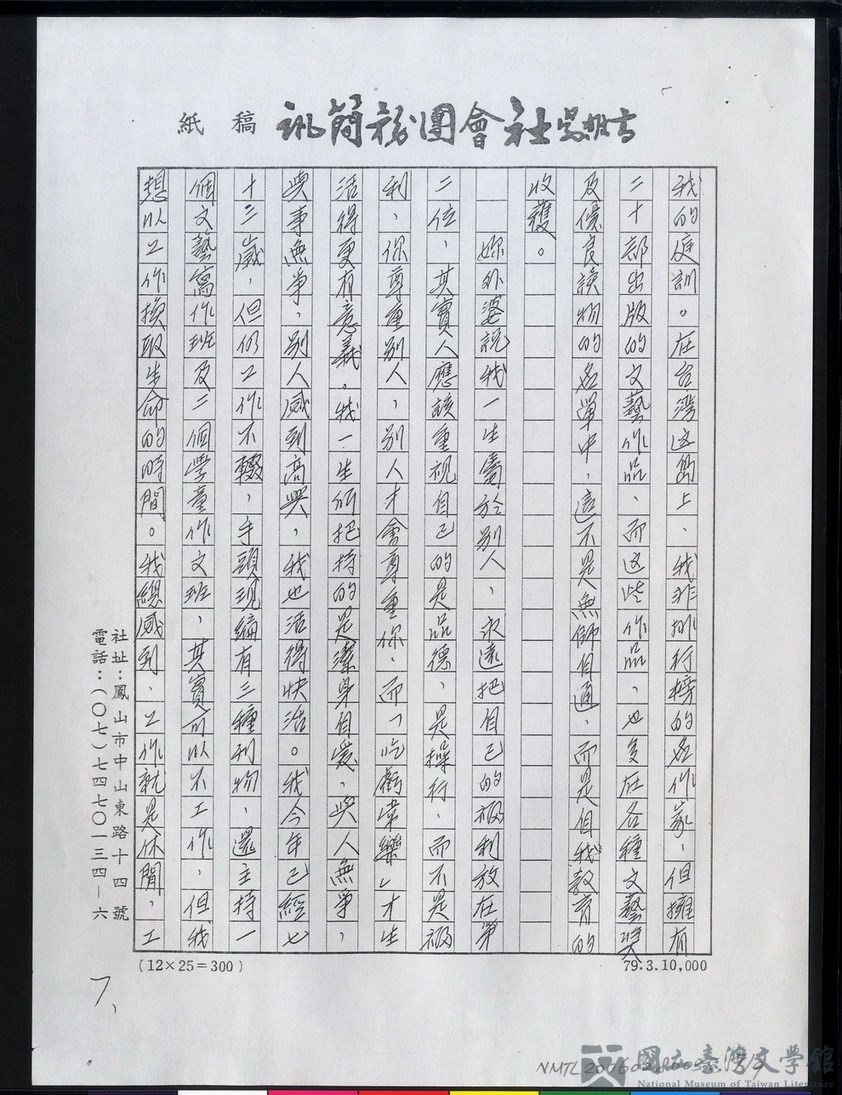 吳姐古社會團務簡訊 稿紙
我的庭訓。在台湾这島上、我非排行榜的名作家，但擁有
二十部出版的文藝作品、而这些作品，也多在各種文藝獎
及優良讀物的名單中，這不是無師自通，而是自我教育的
收獲。
妳外婆説我一生屬於別人，永遠把自己的福利放在第
二位，其實人應該重視自己的是品德，是操行，而不是福
利，你尊重別人，別人才會尊重你，而「吃虧常樂」才生
活得更有意義，我一生所把持的是潔身自愛，與人無爭，
與事無爭，別人感到高興，我也活得快活。我今年已經七
十三歲，但仍工作不輟，手頭現編有三種刊物，還主持一
個文藝寫作班及二個學童作文班，其實可以不工作，但我
想以工作換取生命的時間。我總感到，工作就是休閒，工
社址：鳳山市中山東路十四號
電話：（〇七）七四七〇一三四－六
(12×25=300)
79.3.10,000
7、
國立臺灣文學館
National Museum of Taiwan Literature